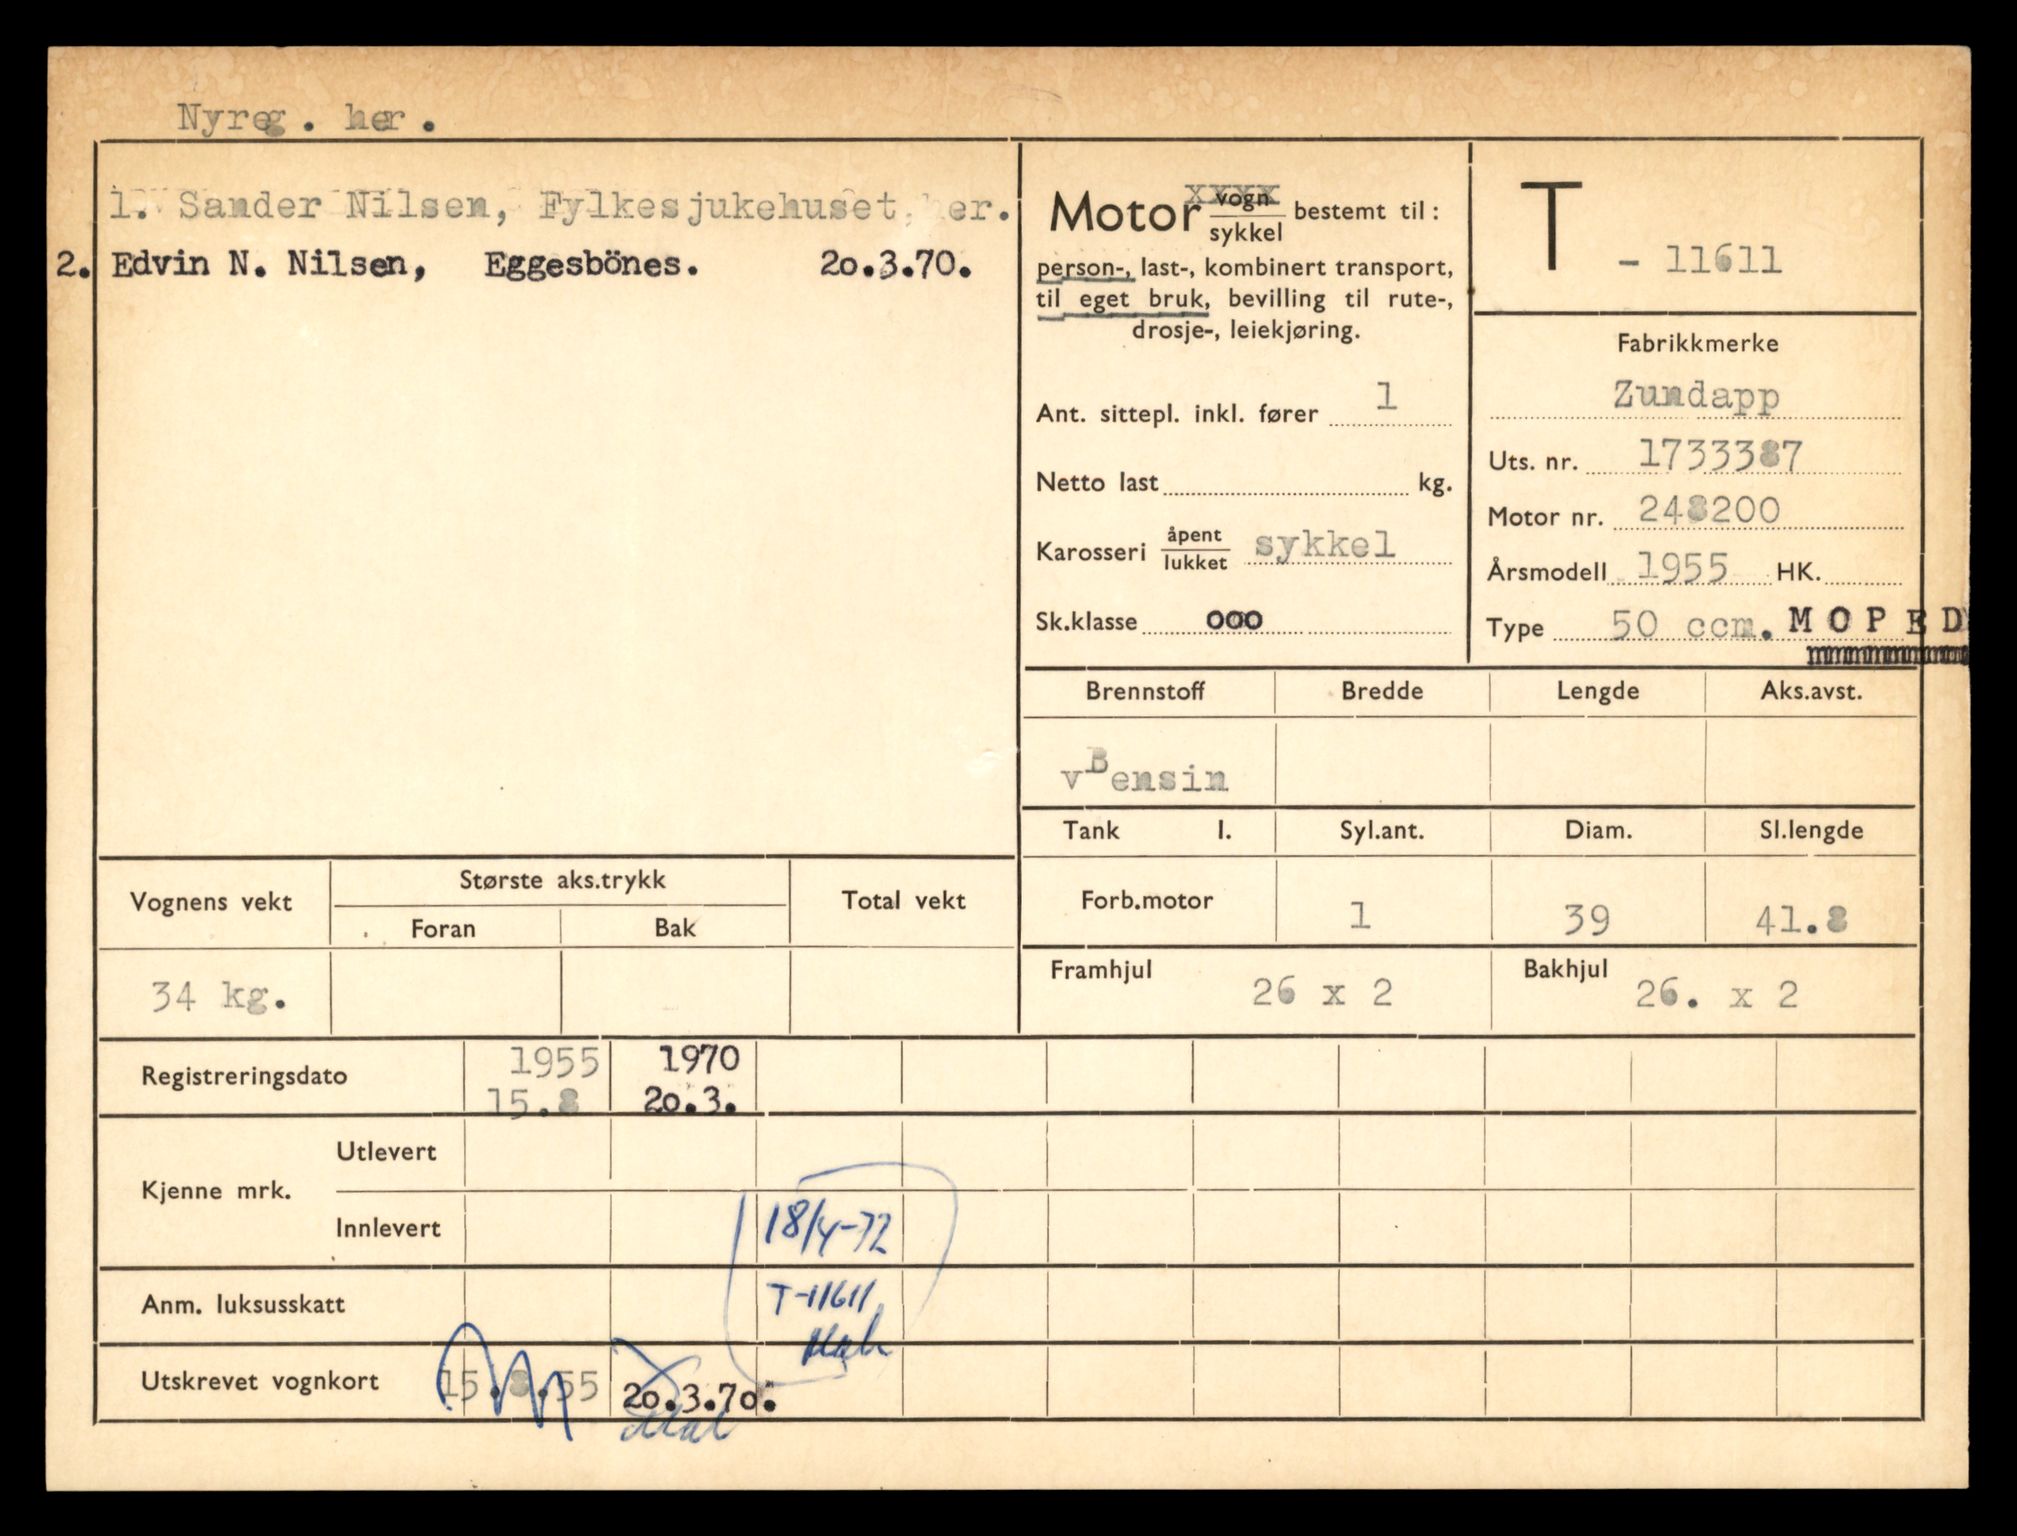 Nyreg. her.
1. Sander Nilsen, Fylkesjukehuset, her.
2. Edvin N. Nilsen, Eggesbönes. 20.3.70.
Motor vogn/sykkel bestemt til:
xxxx
person-, last-, kombinert transport,
til eget bruk, bevilling til rute-,
drosje-, leiekjøring.
Ant. sittepl. inkl. fører 1
Netto last kg.
Karosseri åpent/lukket sykkel
Sk.klasse 000
T - 11611
Fabrikkmerke
Zundapp
Uts. nr. 1733387
Motor nr. 248200
Årsmodell 1955 HK.
Type 50 ccm. MOPED
Brennstoff Bredde Lengde Aks.avst.
vBensin
Tank l. Syl.ant. Diam. Sl.lengde
Forb.motor 1 39 41.8
Framhjul 26 x 2 Bakhjul 26. x 2
Vognens vekt Største aks.trykk Total vekt
Foran Bak
34 kg.
Registreringsdato 1955 1970
15.8 20.3.
Kjenne mrk. Utlevert
Innlevert 18/4-72
Anm. luksusskatt T-11611
Utskrevet vognkort 15.8.55 20.3.70.